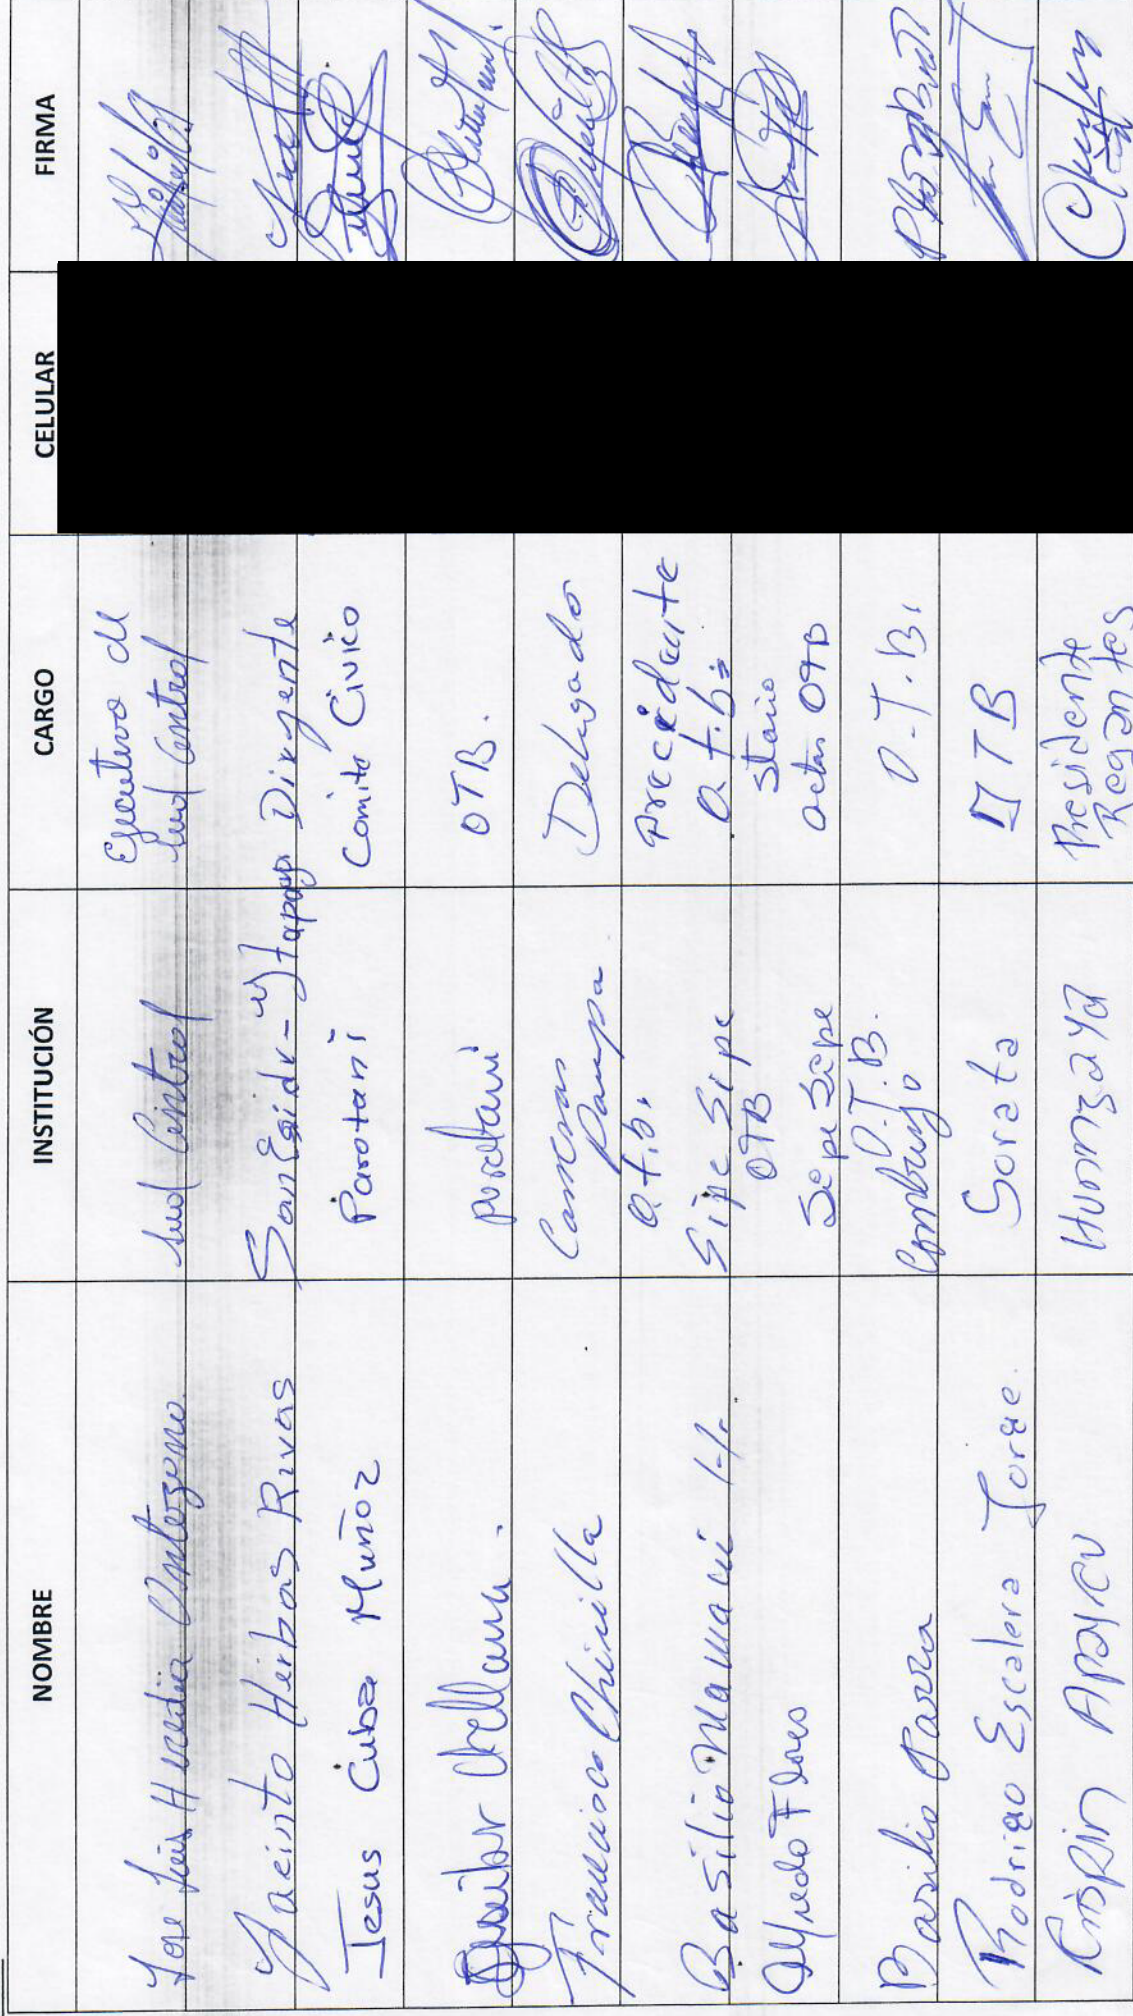 NOMBRE INSTITUCIÓN CARGO CELULAR FIRMA
Jose Luis Heredia Antezana Sud Central Ejecutivo del Sud Central
Jacinto Herbas Rivas San Isidr - Dirigente
Jesus Cuba Muñoz Parotani Comite Civico
Orellana parotani OTB.
Francisco Chinilla Pampa Delegado
Basilio Mamani H. O.t.b. Sipe Sipe Precidente O.t.b.
Alfredo Flores OTB Sipe Sipe Stario actas OTB
Basilio Parra O.T.B. Combuyo O.T.B.
Rodrigo Escalera Jorge. Sorata OTB
Crispin Apaycu Huanzaya Presidente Regantes